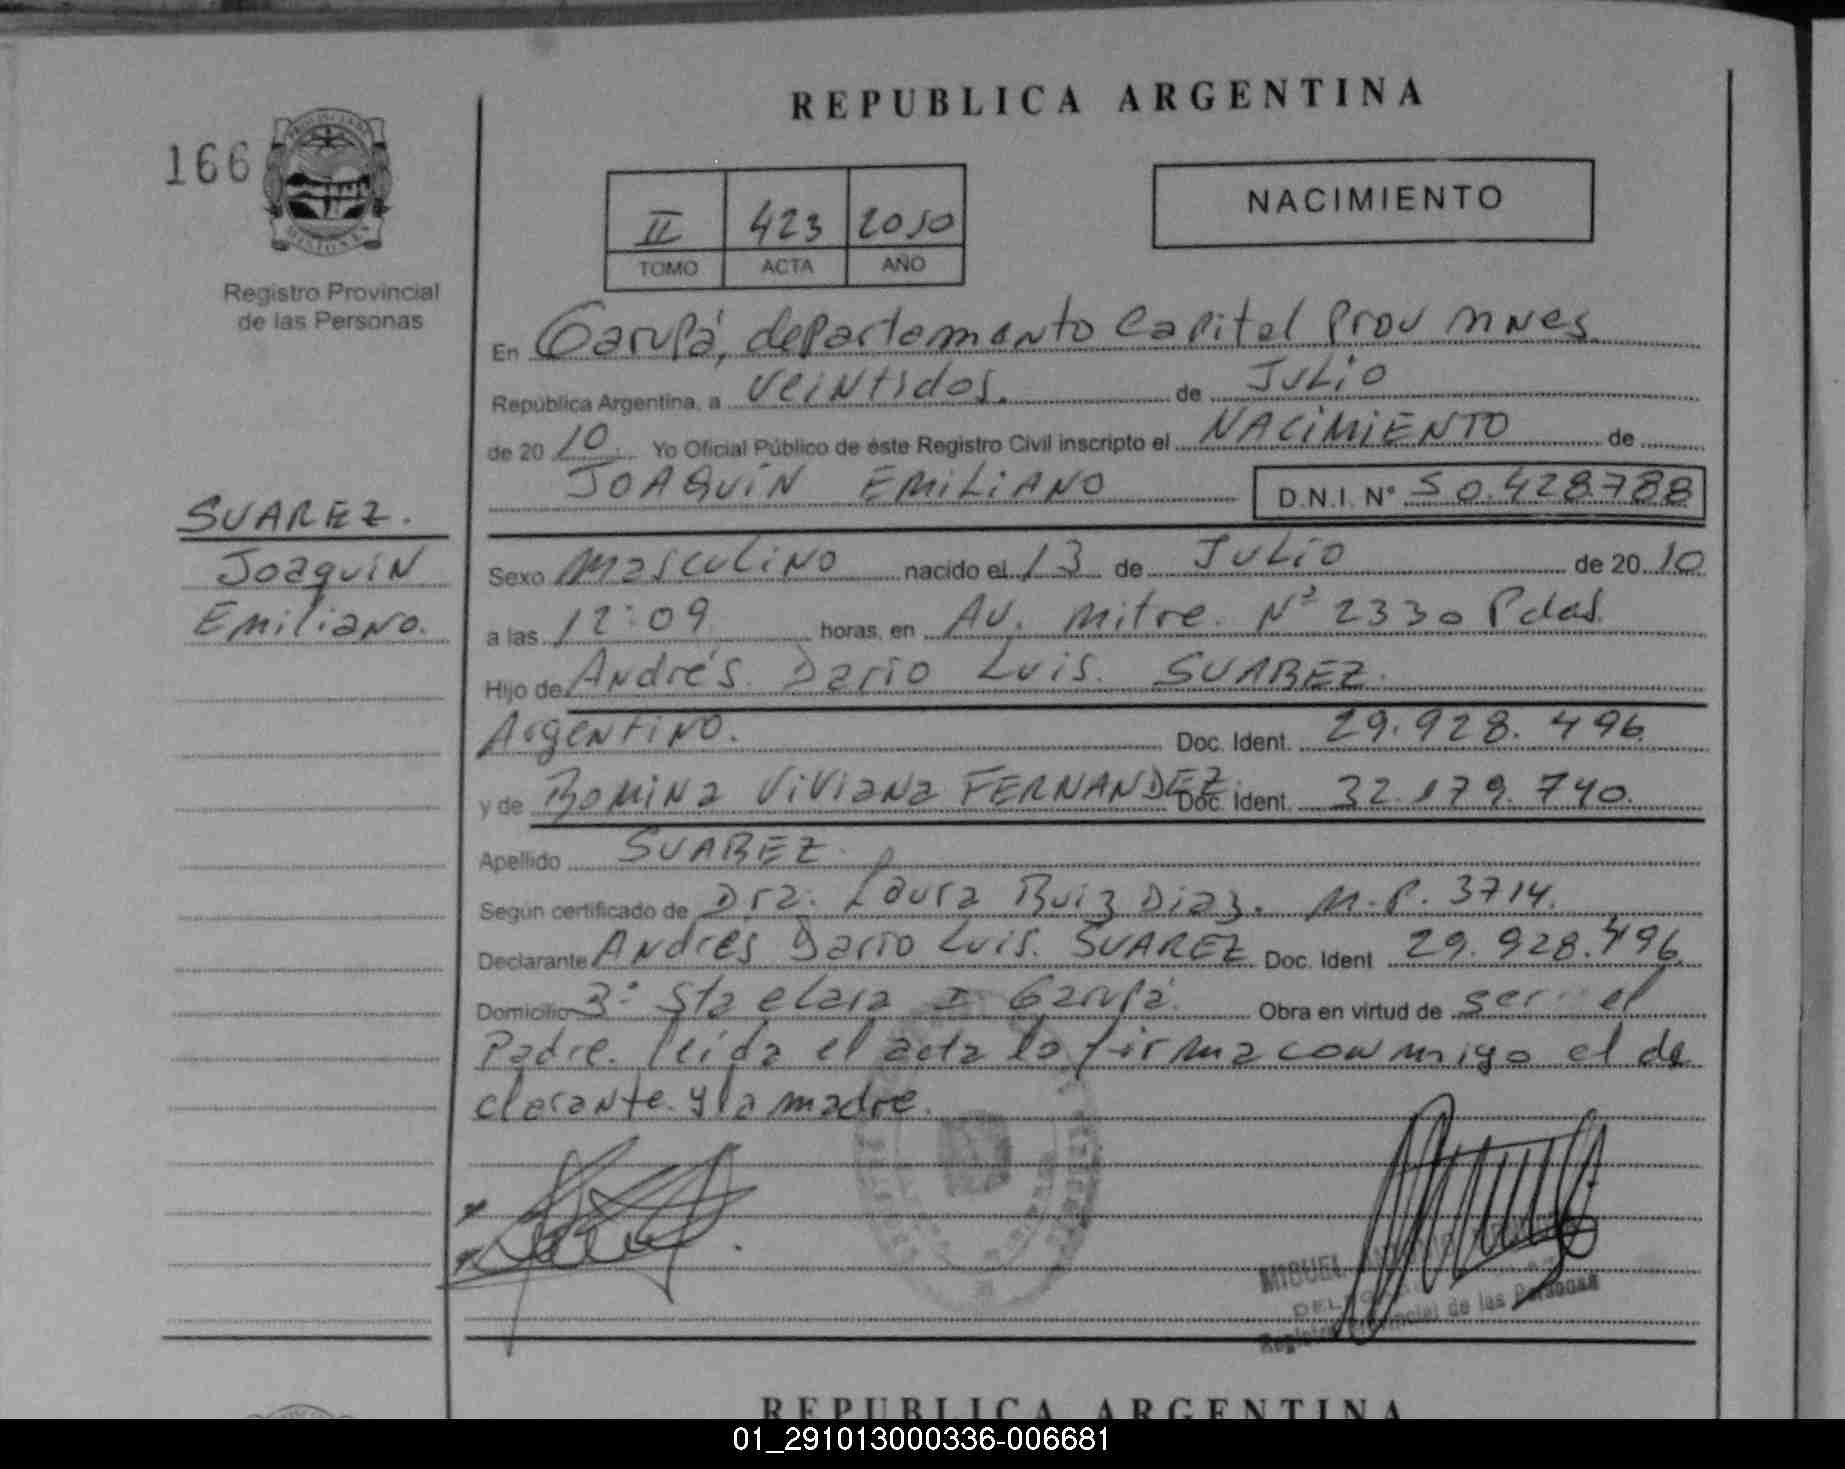 REPUBLICA ARGENTINA
166
PROVINCIA DE
MISIONES
Registro Provincial
de las Personas
II 423 2010
TOMO ACTA AÑO
NACIMIENTO
En Garupá, departamento Capital Prov Mnes
República Argentina, a veintidos. de Julio
de 20 10. Yo Oficial Público de éste Registro Civil inscripto el NACIMIENTO de
JOAQUIN EMILIANO D.N.I. N° 50.428788
SUAREZ.
Joaquin
Emiliano.
Sexo masculino nacido el 13 de Julio de 20 10
a las 12:09 horas, en Av. Mitre. N° 2330 Pdas.
Hijo de Andrés Dario Luis. SUAREZ.
Argentino. Doc. Ident. 29.928.496
y de Romina Viviana FERNANDEZ. Doc. Ident. 32.179.740.
Apellido SUAREZ.
Según certificado de Dra. Laura Ruiz Diaz. M.P. 3714.
Declarante Andrés Dario Luis. SUAREZ Doc. Ident 29.928.496
Domicilio 3° Sta Clara I Garupá. Obra en virtud de ser el
Padre. leida el acta la firma conmigo el de
clarante y la madre.
MIGUEL
Registro Provincial de las Personas
REPUBLICA ARGENTINA
01_291013000336-006681